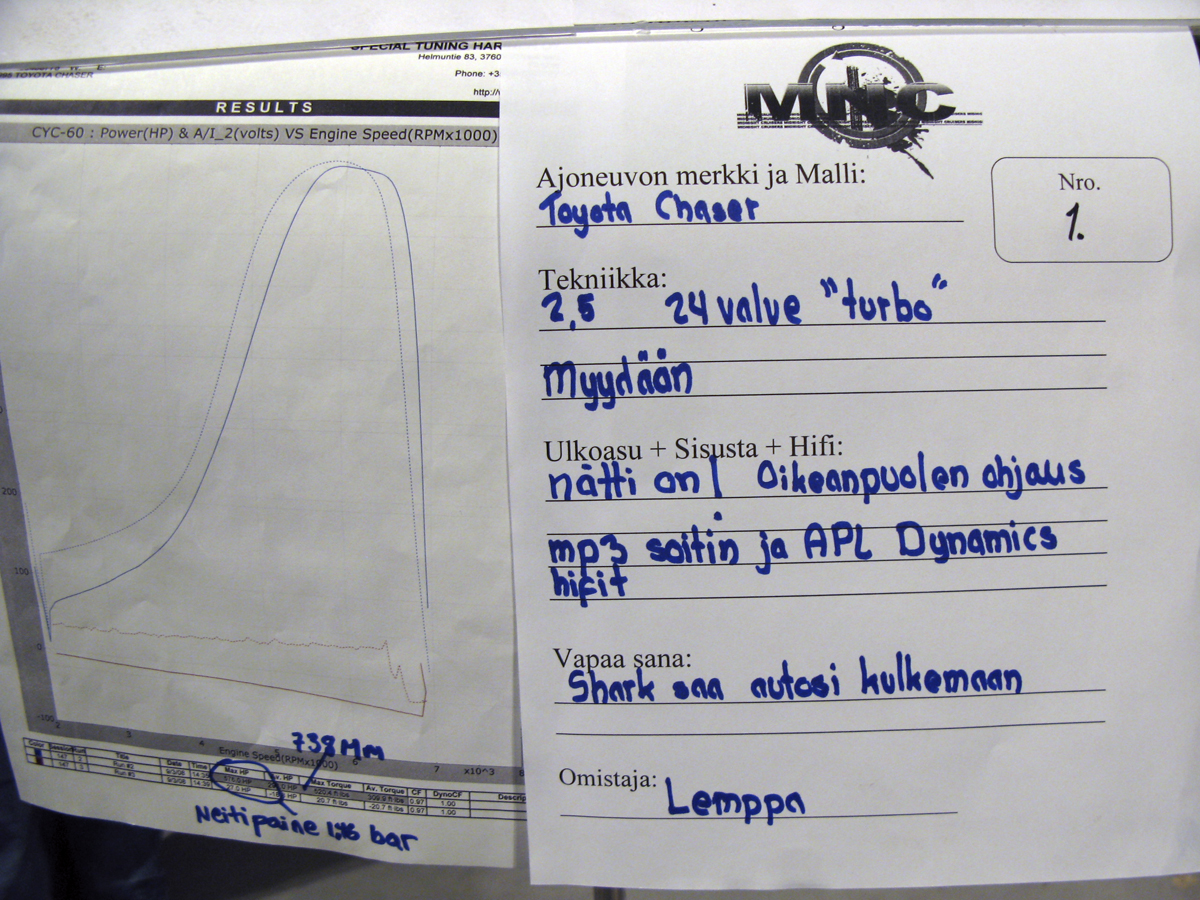 SPECIAL TUNING HAR
Helmuntie 83, 3760
Phone: +3
http://
TOYOTA CHASER
RESULTS
CYC-60 : Power(HP) & A/I_2(volts) VS Engine Speed(RPMx1000)
200
100
0
-100
2 3 4 5 6 7 x10^3 8
Engine Speed(RPMx1000)
738 Mm
Color Session Run Title Date Time Max HP Av. HP Max Torque Av. Torque CF DynoCF Descrip
147 2 Run #2 9/3/08 0.97 1.00
147 3 Run #3 9/3/08 14:39 27.0 HP 20.7 ft lbs -20.7 ft lbs 0.97 1.00
Neitipaine 1,46 bar
MNC
Ajoneuvon merkki ja Malli:
Toyota Chaser
Nro.
1.
Tekniikka:
2,5 24 valve "turbo"
Myydään
Ulkoasu + Sisusta + Hifi:
nätti on! Oikeanpuolen ohjaus
mp3 soitin ja APL Dynamics
hifit
Vapaa sana:
Shark saa autosi kulkemaan
Omistaja:
Lemppa